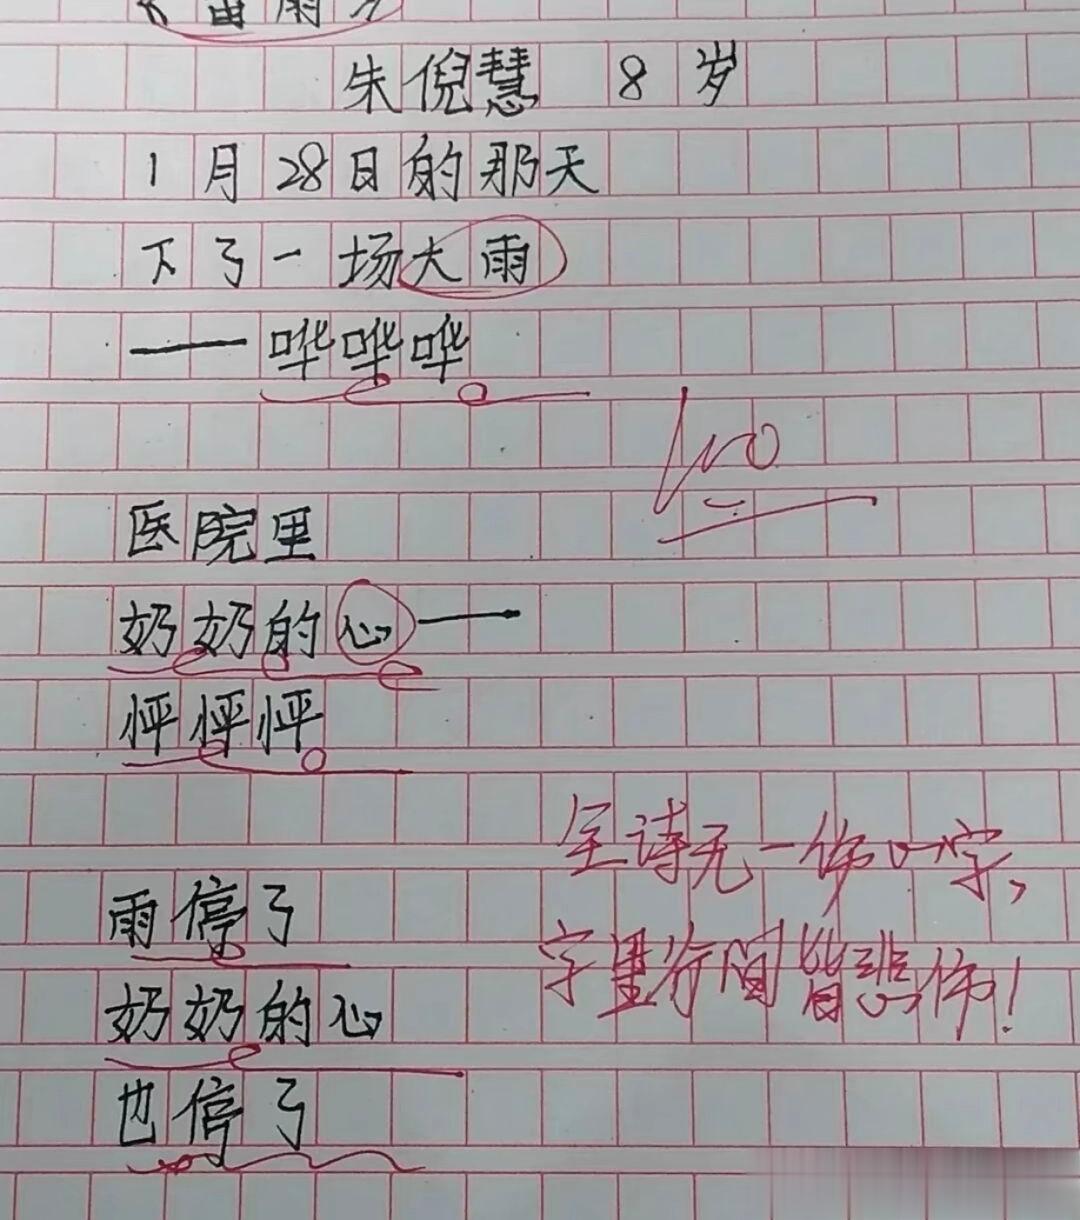 雷雨
朱倪慧 8岁
1月28日的那天
下了一场大雨
——哗哗哗
100
医院里
奶奶的心——
怦怦怦
全诗无一伤字,
字里行间皆悲伤!
雨停了
奶奶的心
也停了